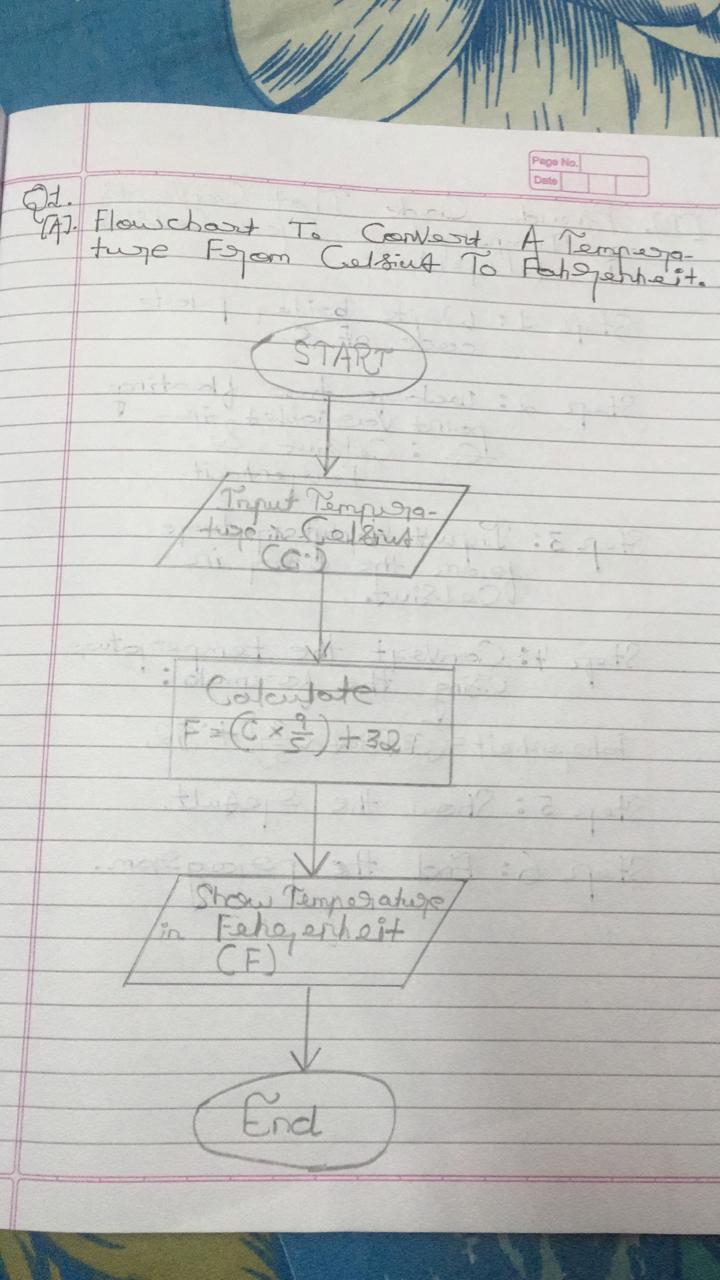 Page No.
Date
Q1.
[A]. Flowchart To Convert A Tempera-
ture From Celsius To Fahrenheit.
START
Input Tempera-
ture in Celsius
(C)
Calculate
F = (C × 9/5) + 32
Show Temperature
in Fehrenheit
(F)
End